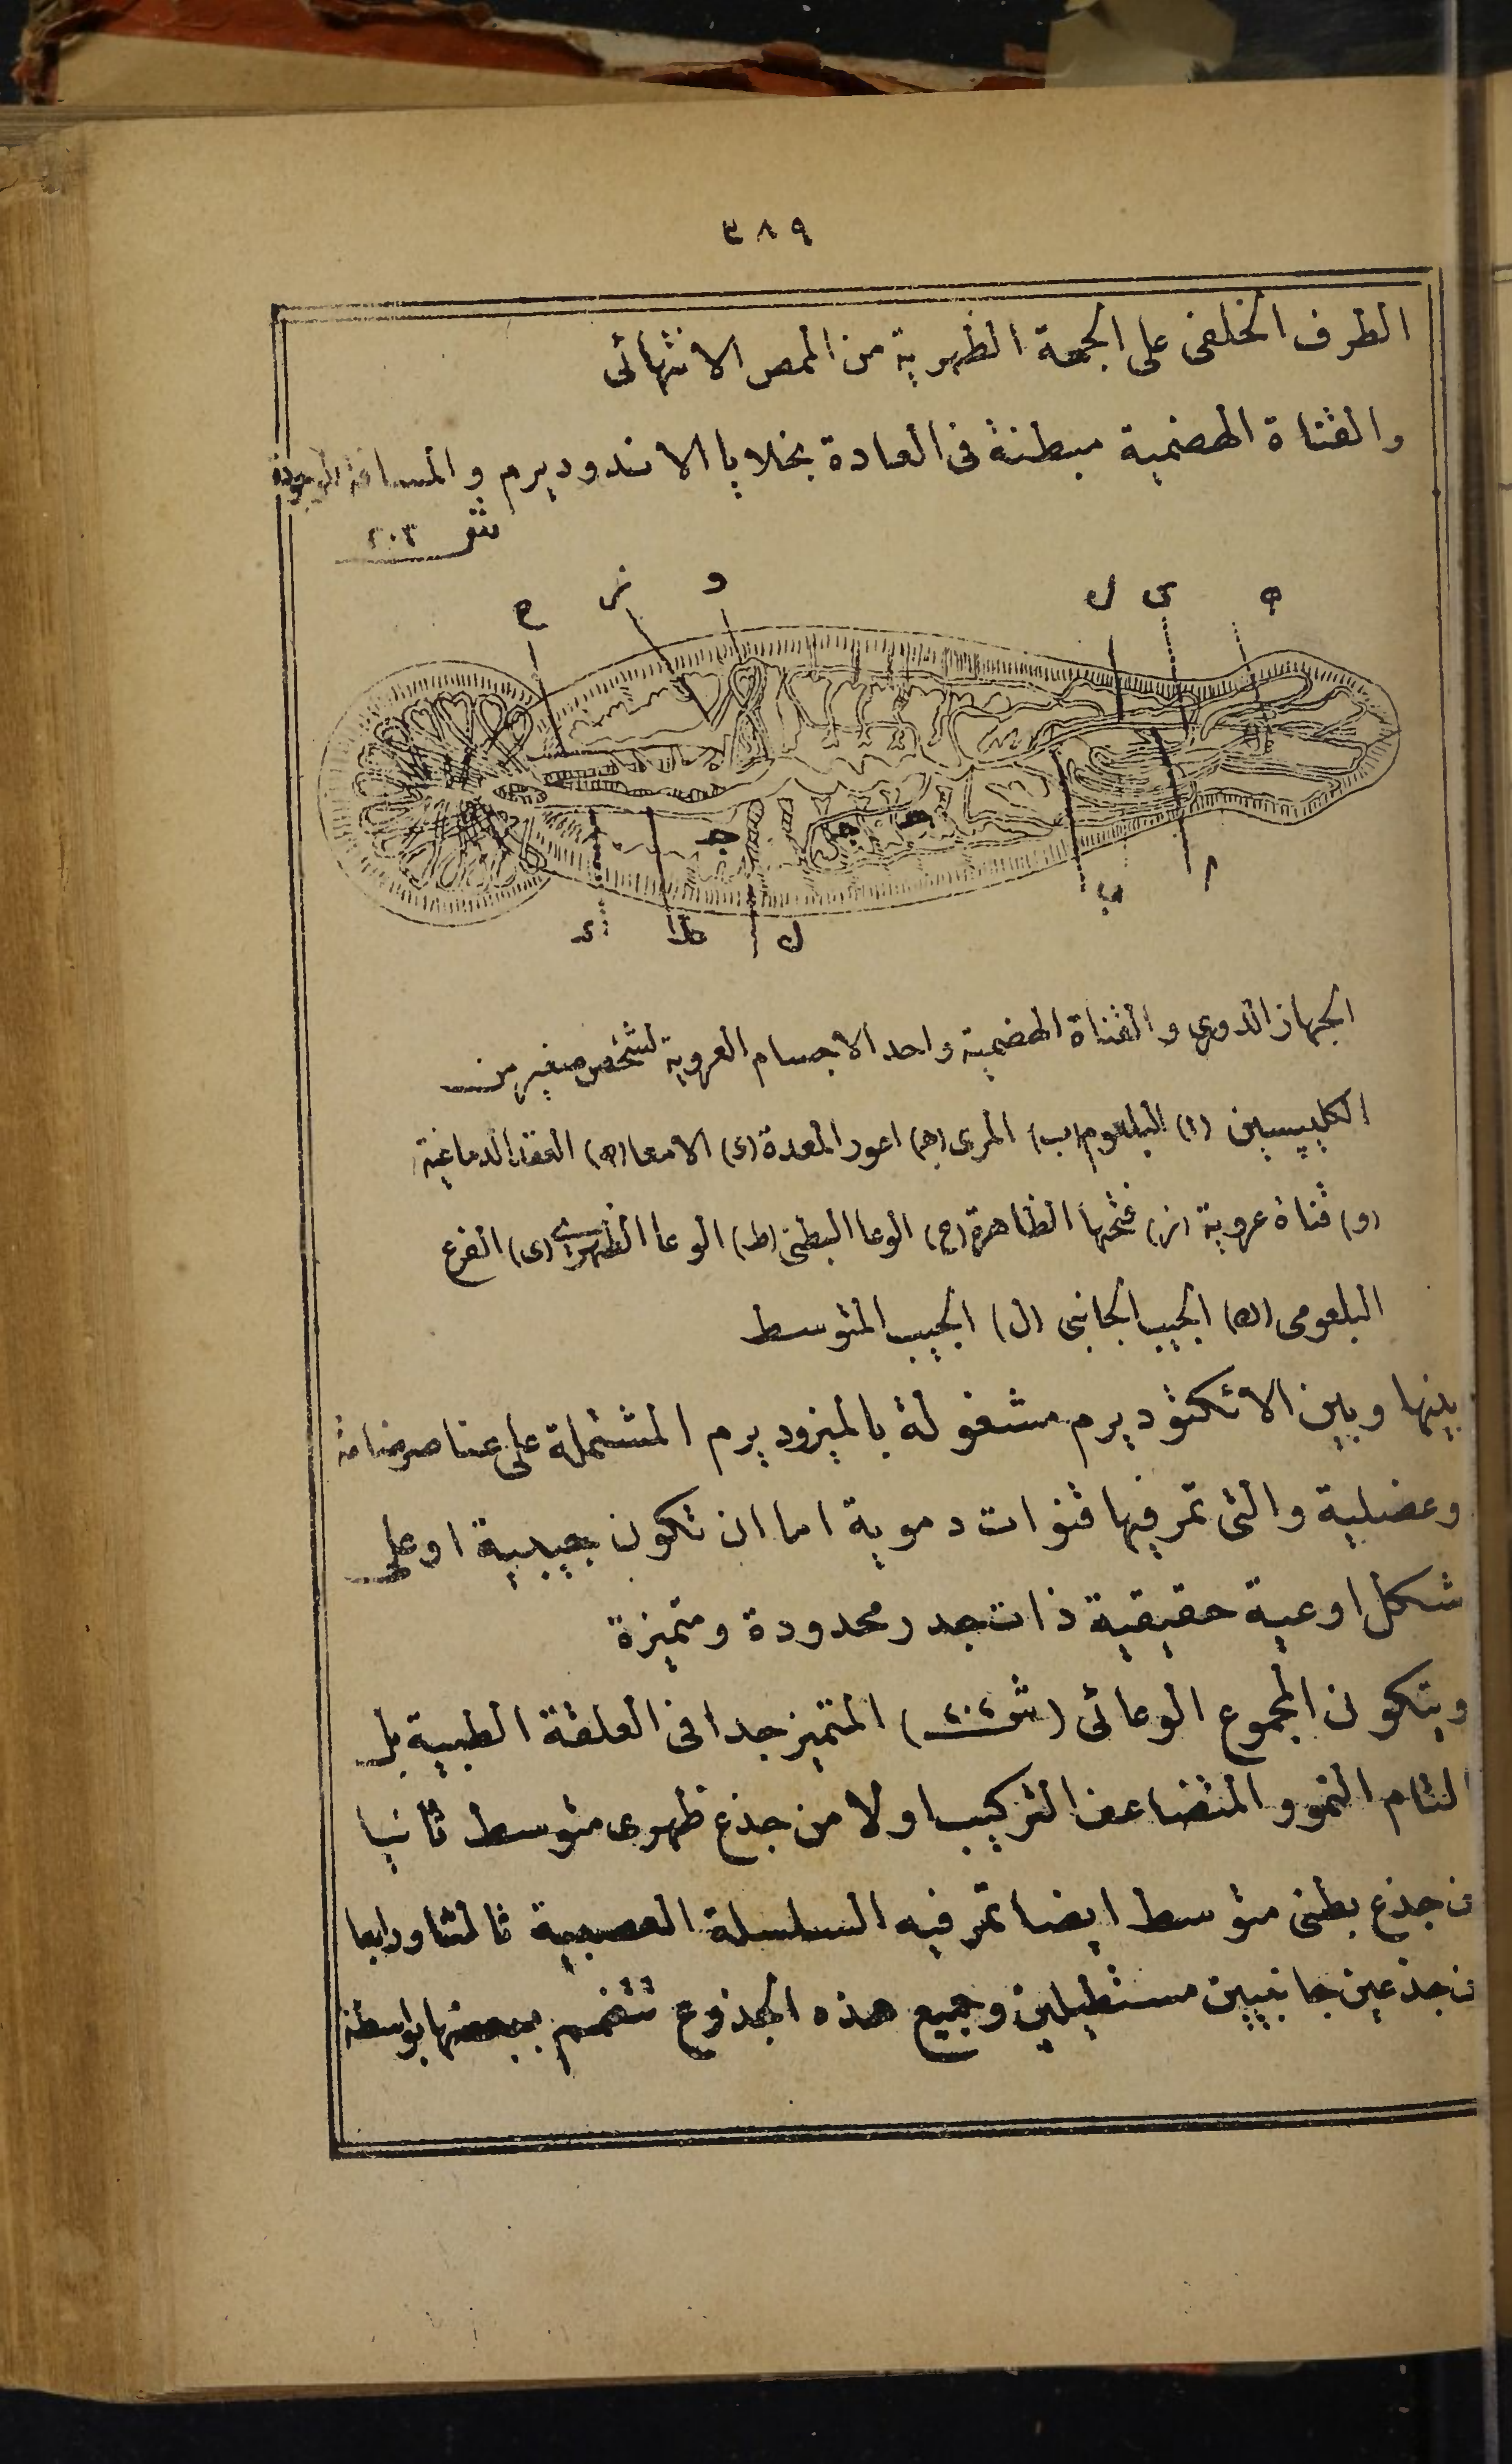 ٣٨٩
الطرف الخلفى على الجهة الظهرية من الممص الانتهائى
والقناة الهضمية مبطنة فى العادة بخلايا الاندوديرم والمسافة الموجودة
شكل ٢٠٣
ح ز و ل ى ه
د ط ك جـ جـ جـ ب ا
الجهاز الدورى والقناة الهضمية واحد الاجسام العروية لشخص صغير من
الكلبيسين (ا) البلعوم (ب) المرى (جـ) اعور المعدة (د) الامعا (ه) العقد الدماغية
(و) قناة عروية (ز) فتحتها الظاهرة (ح) الوعا البطنى (ط) الوعا الظهرى (ى) الفرع
البلعومى (ك) الجيب الجانبى (ل) الجيب المتوسط
بينها وبين الاتكتوديرم مشغولة بالميزوديرم المشتملة على عناصر ضامة
وعضلية والتى تمر فيها قنوات دموية اما ان تكون جيبية او على
شكل اوعية حقيقية ذات جدر محدودة ومتميزة
ويتكون المجموع الوعائى (شكل ٢٠٤) المتميز جدا فى العلقة الطبية بل
التام النمو والمتضاعف التركيب اولا من جذع ظهرى متوسط ثانيا
من جذع بطنى متوسط ايضا تمر فيه السلسلة العصبية ثالثا ورابعا
من جذعين جانبيين مستطيلين وجميع هذه الجذوع تتفمم ببعضها بواسطة